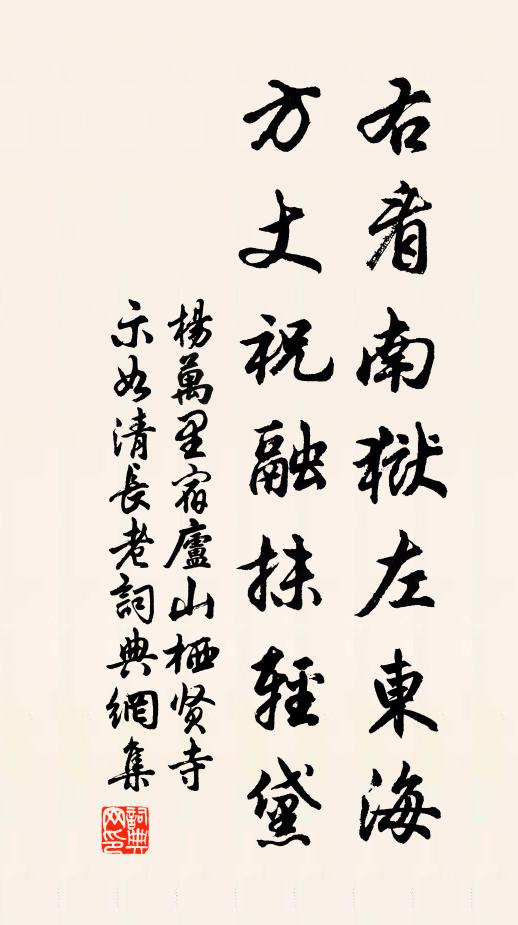 右看南獄左東海
方丈祝融抹輕黛
楊萬里宿廬山栖贤寺
示如清長老詞典網集
詞典網印